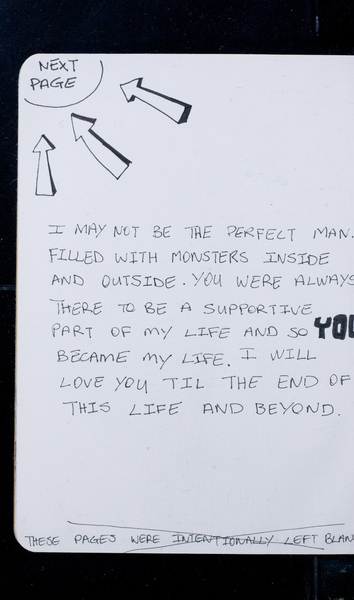 NEXT
PAGE
I MAY NOT BE THE PERFECT MAN.
FILLED WITH MONSTERS INSIDE
AND OUTSIDE. YOU WERE ALWAYS
THERE TO BE A SUPPORTIVE
PART OF MY LIFE AND SO YOU
BECAME MY LIFE. I WILL
LOVE YOU TIL THE END OF
THIS LIFE AND BEYOND.
THESE PAGES WERE INTENTIONALLY LEFT BLAN